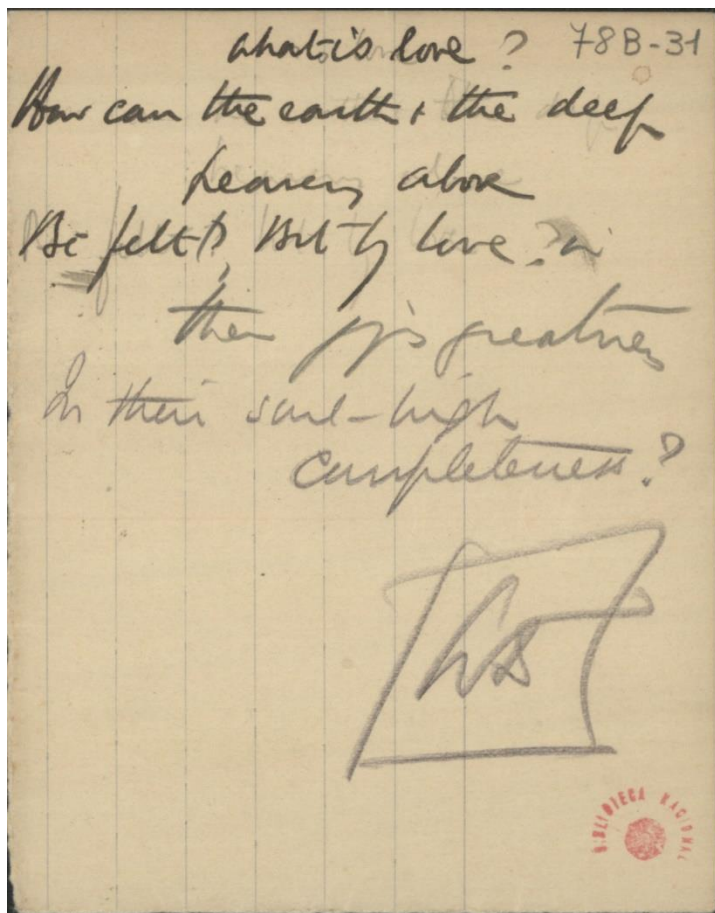 what is love? 78B-31
How can the earth & the deep
heavens above
Be felt? But by love? in
their joy's greatness
In their soul-high
completeness?
BIBLIOTECA NACIONAL